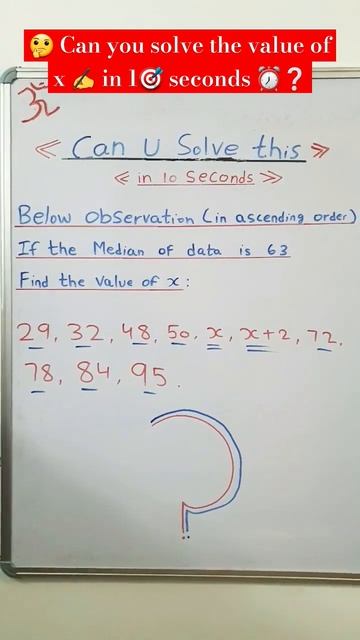 🤔 Can you solve the value of
x ✍️ in 1🎯 seconds ⏰❓
ॐ
« Can U Solve this »
« in 10 Seconds »
Below observation (in ascending order)
If the Median of data is 63
Find the value of x :
29, 32, 48, 50, x, x+2, 72,
78, 84, 95.